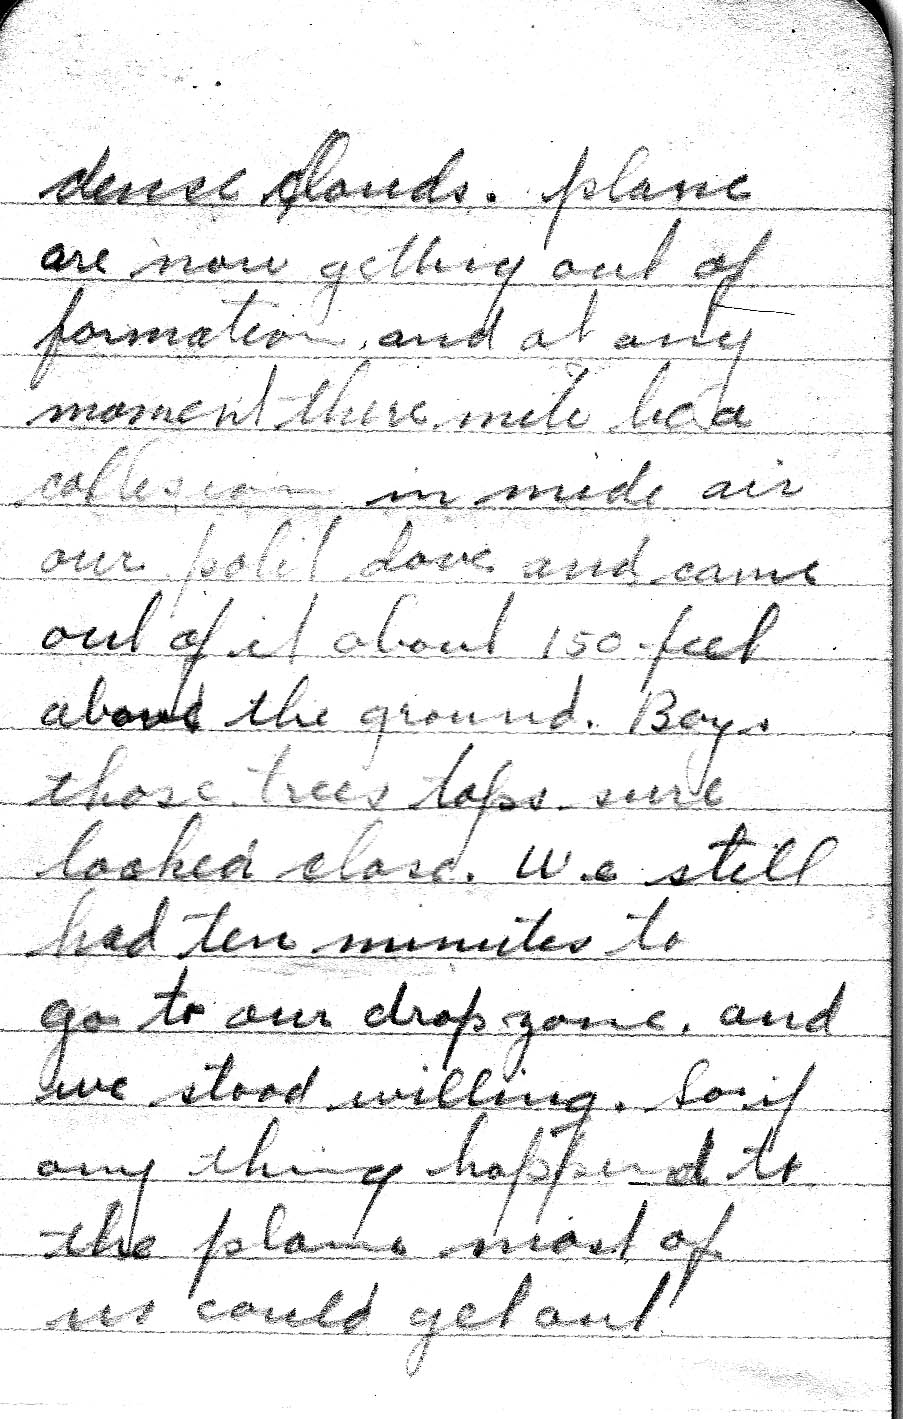 dense clouds. plane
are now getting out of
formation, and at any
moment there mite be a
collesion in mide air
our polit dove and came
out of it about 150 feet
above the ground. Boys
those trees tops sure
looked close. We still
had ten minutes to
go to our drop zone, and
we stood willing. So if
any thing happend to
the plane most of
us could get out